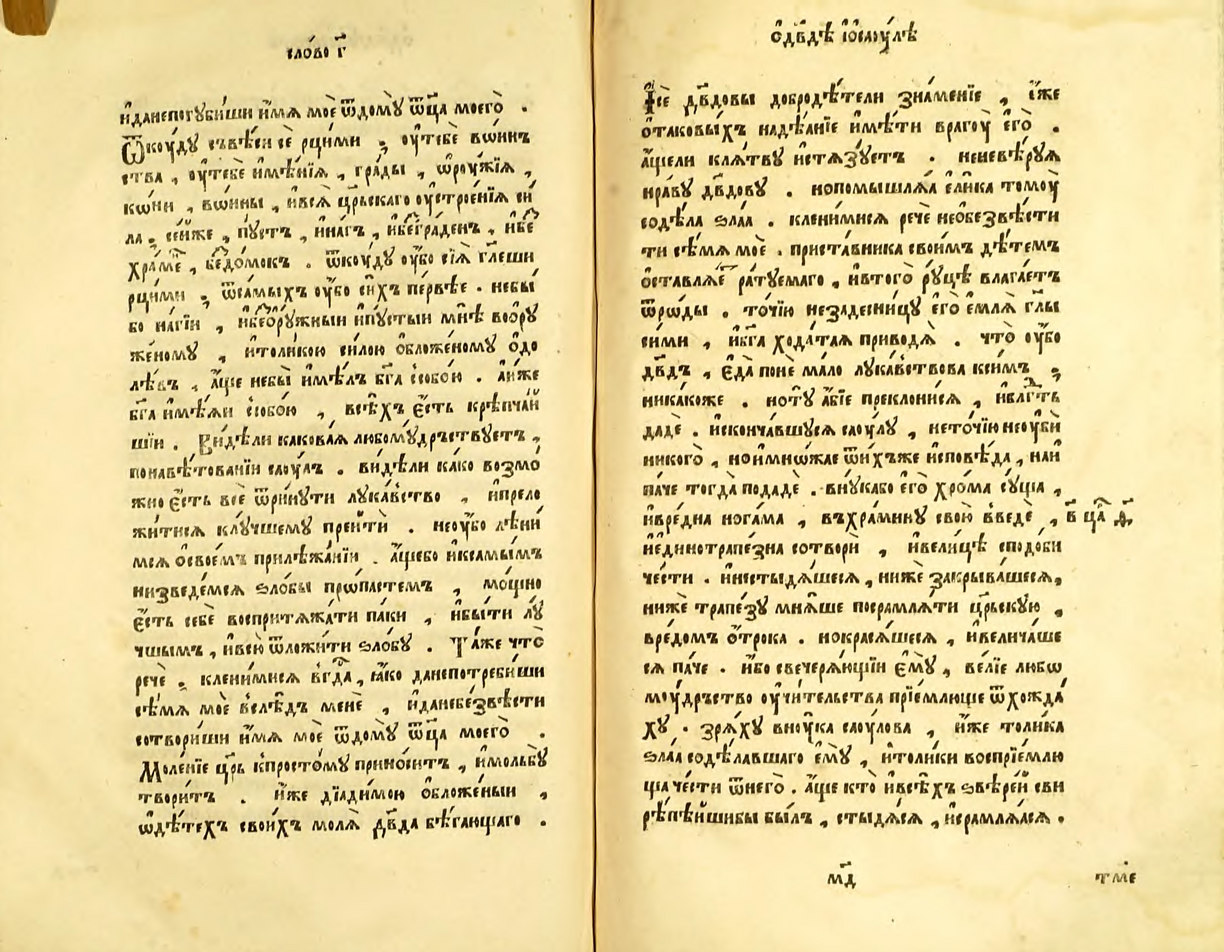 сло́во г҃
и҆данепогꙋ́биши и҆́мѧ моѐ ѿдомꙋ̀ ѿц҃а моего̀ .
Ѿкꙋ́дꙋ съвѣ́си сѐ рцы́ми ; ᲂу҆тебѐ во́инъ
ства , ᲂу҆тебѐ и҆мѣ́нїѧ , гра́ды , ѡ҆рꙋ́жїѧ ,
ко́ни , во́ины , и҆всѧ̀ црⷭ҇каго ᲂу҆строе́нїѧ си́
ла . се́йже , пꙋ́стъ , и҆на́гъ , и҆безгра́денъ , и҆бе
хра́ме , бездо́мокъ . ѿкꙋ́дꙋ ᲂу҆бо сїѧ̀ гл҃еши
рцы́ми ; ѿса́мыхъ ᲂу҆бо си́хъ пе́рвѣе . небы̀
бо на́гїи , и҆безорꙋ́жныи и҆пꙋсты́и мнѣ̀ воѻрꙋ
же́номꙋ , и҆толи́кою си́лою ѻ҆бложе́номꙋ ѻ҆до
лѣ́въ , а҆́ще небы̀ и҆мѣ́лъ бг҃а собо́ю . а҆и҆́же
бг҃а и҆мѣ́ѧи собо́ю , всѣ́хъ є҆́сть крѣпча́й
шїи . Ви́дѣли какова́ѧ любомꙋ́дрьствꙋетъ ,
понавѣ́тованїи саꙋ́лъ . ви́дѣли ка́ко возмо́
жно є҆́сть всѐ ѿри́нꙋти лꙋка́вьство , и҆прело
жи́тисѧ клꙋ́чшемꙋ прейтѝ . неᲂу҆бо лѣни́
мсѧ ѻ҆свое́мъ прилѣжа́нїи . а҆́щебо и҆ксамы́мъ
низведе́мсѧ ѕло́бы про́пастемъ , мо́щно
є҆́сть себѐ воспритѧжа́ти па́ки , и҆бы́ти лꙋ́
чшымъ , и҆всю̀ ѿложи́ти ѕло́бꙋ . Та́же что̀
речѐ . клени́мисѧ бг҃да , ꙗ҆́ко данепотреби́ши
сѣ́мѧ моѐ вслѣ́дъ менѐ , и҆данебезвѣ́сти
сотвори́ши и҆́мѧ моѐ ѿдо́мꙋ ѿц҃а моего̀ .
Моле́нїе цр҃ь кпросто́мꙋ прино́ситъ , и҆мольбꙋ̀
твори́тъ . и҆́же дїади́мою ѻ҆бложе́ныи ,
ѡ҆дѣ́техъ свои́хъ молѧ̀ дв҃да бѣ́гающаго .
ѻ҆дв҃дѣ и҆ѻ҆саꙋ́лѣ
І҆сѐ дв҃довы добродѣ́тели зна́менїе , і҆́же
ѻ҆таковы́хъ надѣ́анїе и҆мѣ́ти врагꙋ̀ є҆гѡ̀ .
а҆́щели клѧ́твꙋ и҆стѧзꙋ́етъ . неневѣ́рꙋѧ
нра́вꙋ дв҃довꙋ . нопомышлѧ́ѧ є҆ли́ка томꙋ̀
содѣ́ла ѕла́ѧ . клени́мисѧ речѐ необезвѣ́сти
ти сѣ́мѧ моѐ . приста́вника свои́мъ дѣ́темъ
ѻ҆ставлѧ́е ратꙋ́емаго , и҆втого̀ рꙋ́цѣ влага́етъ
ѿро́ды . то́чїю незадесни́цꙋ є҆го̀ є҆́млѧ гл҃ы
си́ми , и҆бг҃а хода́таѧ приводѧ̀ . что̀ ᲂу҆бо
дв҃дъ , є҆да̀ понѐ ма́ло лꙋка́вствова кси́мъ ;
ника́коже . нотꙋ̀ а҆́бїе преклони́сѧ , и҆блгⷣть
дадѐ . и҆сконча́вшꙋсѧ саꙋ́лꙋ , нето́чїю неᲂу҆би
нико́го , ноимно́жае ѿни́хъже и҆сповѣ́да , наи
па́че тогда̀ подадѐ . внꙋ́кабо є҆го̀ хро́ма сꙋ́ща ,
и҆вре́дна нога́ма , въхра́минꙋ свою̀ введѐ , в҃ цр҃ⷭ д҃.
и҆є҆динотрапе́зна сотворѝ , и҆вели́цѣ сподо́би
че́сти . и҆нестыдѧ́шесѧ , нижѐ закрыва́шесѧ,
нижѐ трапе́зꙋ мнѧ́ше посрамлѧ́ти црⷭ҇кꙋю ,
вре́домъ ѻ҆́трока . нокрасѧ́шесѧ , и҆велича́ше
сѧ па́че . и҆́бо свечерѧ́ющїи є҆мꙋ̀ , ве́лїе любо
мꙋ́дрьство ᲂу҆чи́тельства прїе́млюще ѿхожда́
хꙋ . зрѧ́хꙋ внꙋ́ка саꙋ́лова , и҆́же толи́ка
ѕла́ѧ содѣ́лавшаго є҆мꙋ̀ , и҆толи́ки воспрїе́млю
ща че́сти ѿнего̀ . а҆́ще кто̀ и҆всѣ́хъ ѕвѣре́й сви
рѣпѣ́йшибы бы́лъ , стыдѧ́сѧ , и҆срамлѧ́ѧсѧ .
мд҃
тме